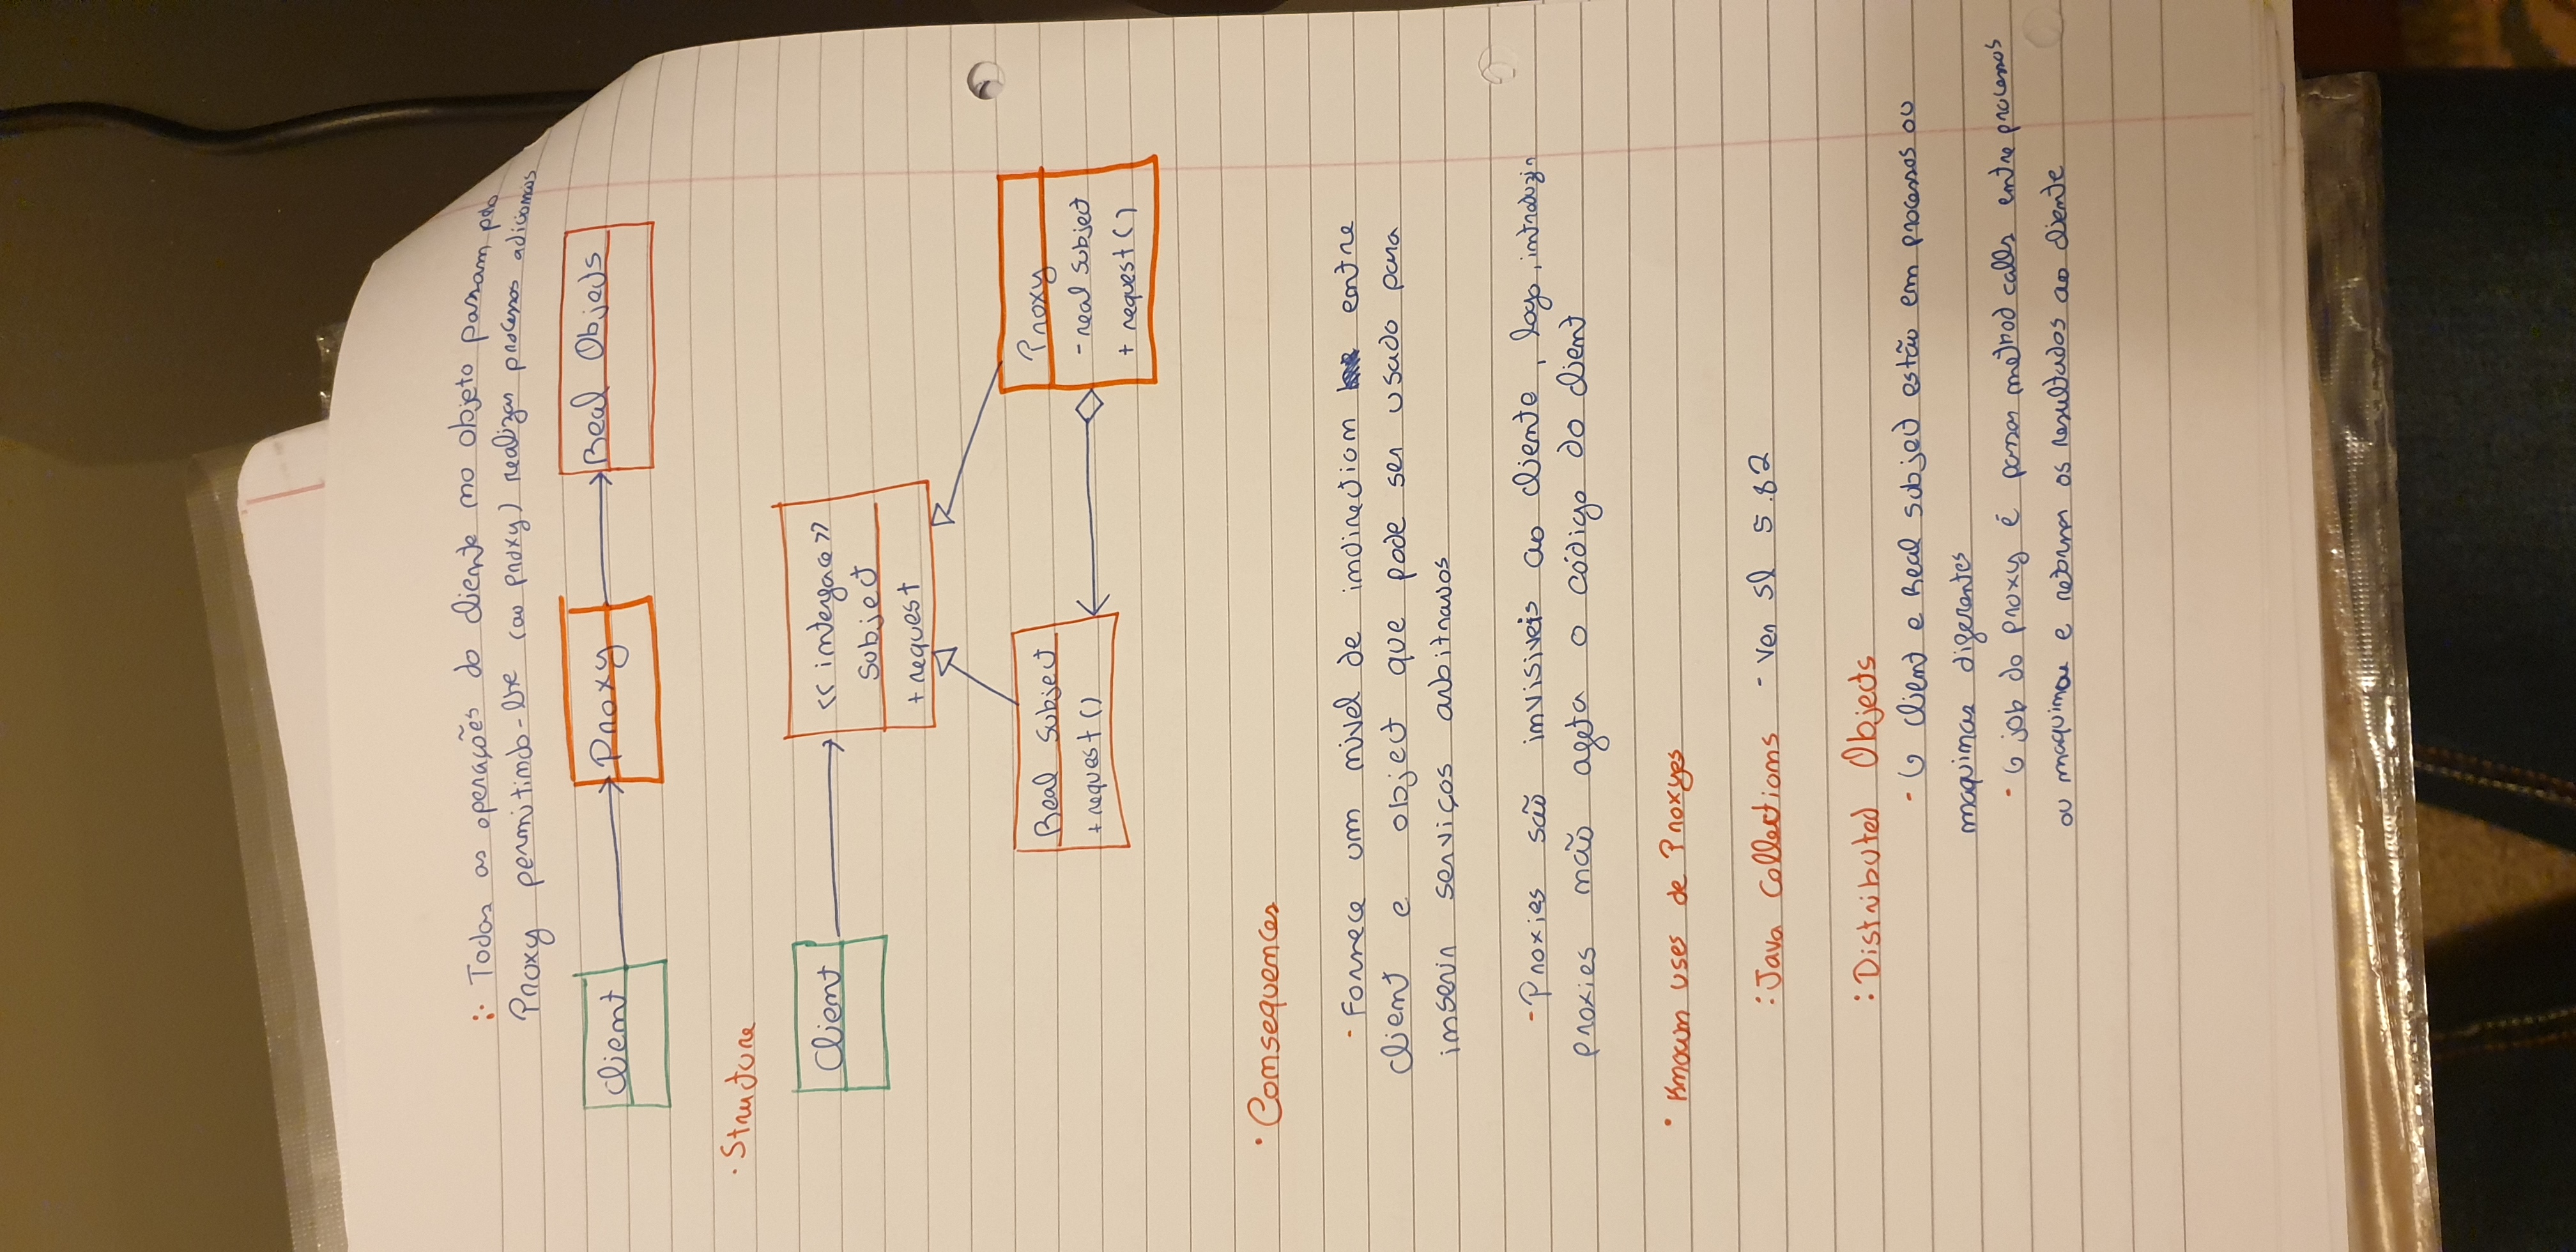 :· Todas as operações do cliente no objeto passam pelo
Proxy permitindo-lhe (ao proxy) realizar processos adicionais
Client
Proxy
Real Objects
· Structure
Client
<< interface >>
Subject
+ request
Real Subject
+ request ()
Proxy
- real Subject
+ request ()
· Consequences
- Fornece um nivel de indirection entre
client e object que pode ser usado para
inserir serviços arbitrarios
- Proxies são invisiveis ao cliente, logo, introduzir
proxies não afeta o código do client
· Known uses de Proxyes
: Java Collections - Ver Sl 5.82
: Distributed Objects
- O client e Real subject estão em processos ou
maquinas diferentes
- O job do proxy é passar method calls entre processos
ou maquinas e retornar os resultados ao cliente